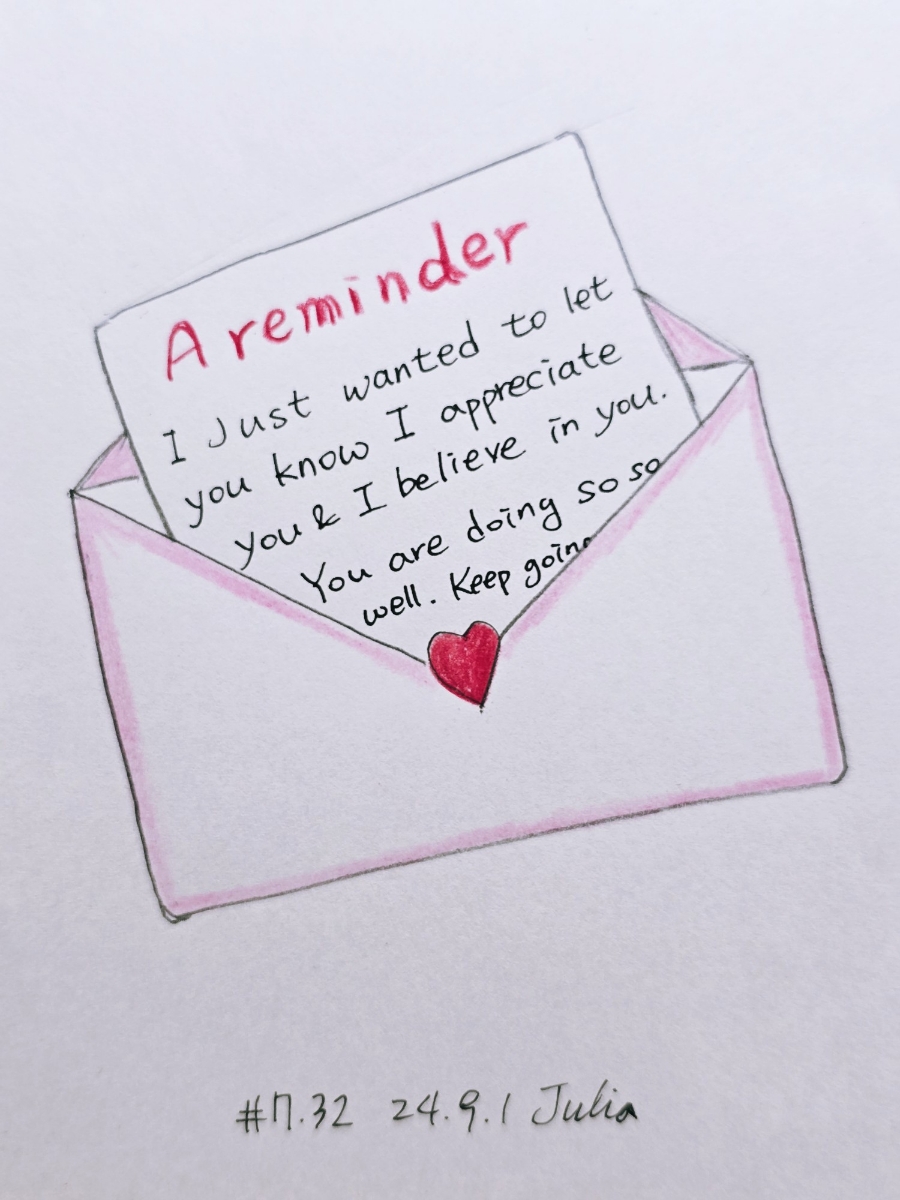 A reminder
I Just wanted to let
you know I appreciate
you & I believe in you.
You are doing so so
well. Keep going
#7.32 24.9.1 Julia